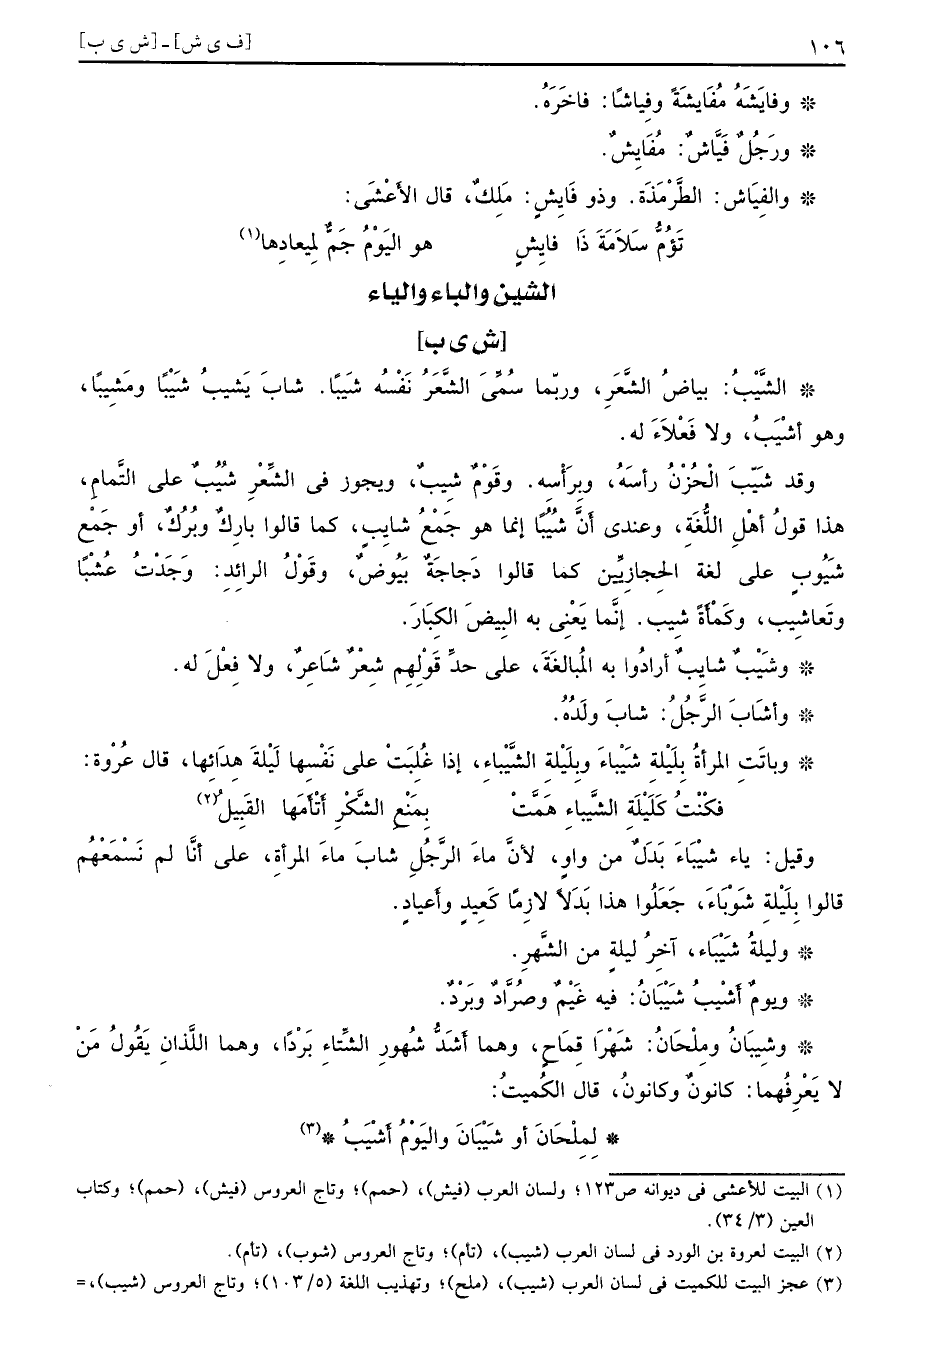 ١٠٦ [ف ى ش] ـ [ش ى ب]
* وفايَشَهُ مُفَايشَةً وفِياشًا: فاخَرَهُ.
* ورَجُلٌ فَيَّاشٌ: مُفَايِشٌ.
* والفِيَاش: الطَّرْمَذَة. وذو فَايِشٍ: مَلِكٌ، قال الأَعْشَى:
تَؤُمُّ سَلاَمَةَ ذَا فايِشٍ هو اليَوْمُ جَمٌّ لمِيعادِها(١)
الشين والباء والياء
[ش ى ب]
* الشَّيْبُ: بياضُ الشَّعَرِ، وربّما سُمِّىَ الشَّعَرُ نَفْسُه شَيَبًا. شابَ يَشيبُ شَيْبًا ومَشِيبًا،
وهو أشيَبُ، ولا فَعْلاَءَ له.
وقد شَيّبَ الْحُزْنُ رأسَهُ، وبِرَأْسِه. وقَوْمٌ شيبٌ، ويجوز فى الشِّعْرِ شُيُبٌ على التَّمامِ،
هذا قولُ أهْلِ اللُّغَةِ، وعندى أنَّ شُيُبًا إنما هو جَمْعُ شايِبٍ، كما قالوا بارِكٌ وبُرُكٌ، أو جَمْع
شَيُوبٍ على لغة الحِجازيِّين كما قالوا دَجاجَةٌ بَيُوضٌ، وقَوْلُ الرائِدِ: وَجَدْتُ عُشْبًا
وتَعاشِيب، وكَمْأَةً شِيب. إنَّما يَعْنِى به البيضَ الكِبَارَ.
* وشَيْبٌ شايِبٌ أرادُوا به المُبالغَةَ، على حدِّ قَوْلِهِم شِعْرٌ شَاعِرٌ، ولا فِعْلَ له.
* وأشَابَ الرَّجُلُ: شابَ ولَدُهُ.
* وباتَتِ المرأةُ بِلَيْلَةِ شَيْباءَ وبلَيْلَةِ الشَّيْباءِ، إذا غُلِبَتْ على نَفْسِها لَيْلَةَ هِدَائِها، قال عُرْوة:
فكُنْتُ كَلَيْلَةِ الشَّيباءِ هَمَّتْ بِمَنْعِ الشَّكْرِ أَتْأَمَها القَبِيلُ(٢)
وقيل: ياء شيْبَاءَ بَدَلٌ من واوٍ، لأنَّ ماءَ الرَّجُلِ شابَ ماءَ المرأةِ، على أنَّا لم نَسْمَعْهُم
قالوا بِلَيْلةِ شَوْبَاءَ، جَعَلُوا هذا بَدَلاً لازِمًا كَعِيدٍ وأعيادٍ.
* وليلةُ شَيْبَاء، آخِرُ ليلةٍ من الشَّهرِ.
* ويومٌ أشْيبُ شَيْبَانُ: فيه غَيْمٌ وصُرَّادٌ وبَرْدٌ.
* وشيبانُ ومِلْحَانُ: شَهْرَا قِماحٍ، وهما أشَدُّ شُهورِ الشِّتاءِ بَرْدًا، وهما اللَّذانِ يَقُولُ مَنْ
لا يَعْرِفُهما: كانونٌ وكانونُ، قال الكُميتُ:
* لِمِلْحَانَ أو شَيْبَانَ واليَوْمُ أشْيَبُ *(٣)
(١) البيت للأعشى فى ديوانه ص١٢٣؛ ولسان العرب (فيش)، (حمم)؛ وتاج العروس (فيش)، (حمم)؛ وكتاب
العين (٣/ ٣٤).
(٢) البيت لعروة بن الورد فى لسان العرب (شيب)، (تأم)؛ وتاج العروس (شوب)، (تأم).
(٣) عجز البيت للكميت فى لسان العرب (شيب)، (ملح)؛ وتهذيب اللغة (٥/ ١٠٣)؛ وتاج العروس (شيب)،=